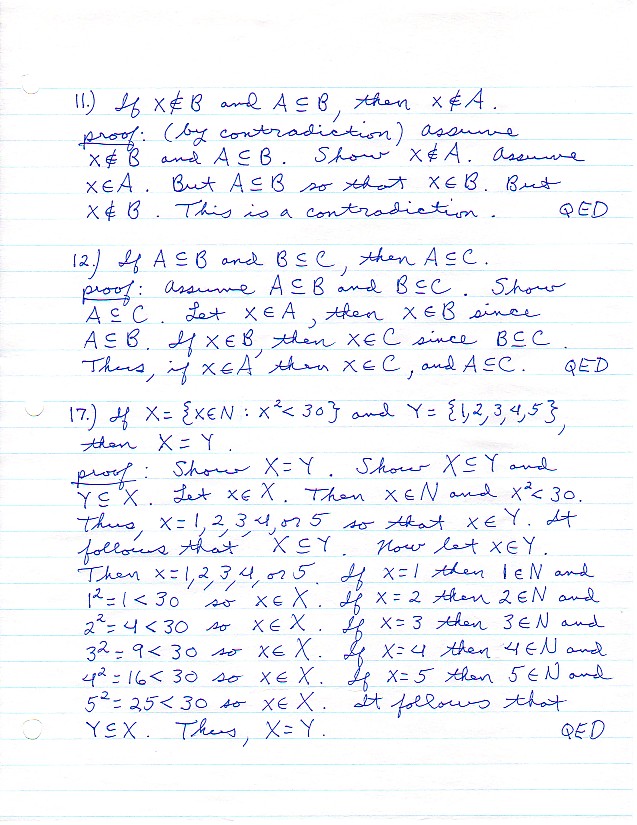 11.) If x∉B and A⊆B, then x∉A.
proof: (by contradiction) Assume
x∉B and A⊆B. Show x∉A. Assume
x∈A. But A⊆B so that x∈B. But
x∉B. This is a contradiction. QED
12.) If A⊆B and B⊆C, then A⊆C.
proof: Assume A⊆B and B⊆C. Show
A⊆C. Let x∈A, then x∈B since
A⊆B. If x∈B, then x∈C since B⊆C.
Thus, if x∈A then x∈C, and A⊆C. QED
17.) If X={x∈N : x²<30} and Y={1,2,3,4,5},
then X=Y.
proof: Show X=Y. Show X⊆Y and
Y⊆X. Let x∈X. Then x∈N and x²<30.
Thus, x=1,2,3,4, or 5 so that x∈Y. It
follows that X⊆Y. Now let x∈Y.
Then x=1,2,3,4, or 5. If x=1 then 1∈N and
1²=1<30 so x∈X. If x=2 then 2∈N and
2²=4<30 so x∈X. If x=3 then 3∈N and
3²=9<30 so x∈X. If x=4 then 4∈N and
4²=16<30 so x∈X. If x=5 then 5∈N and
5²=25<30 so x∈X. It follows that
Y⊆X. Thus, X=Y. QED